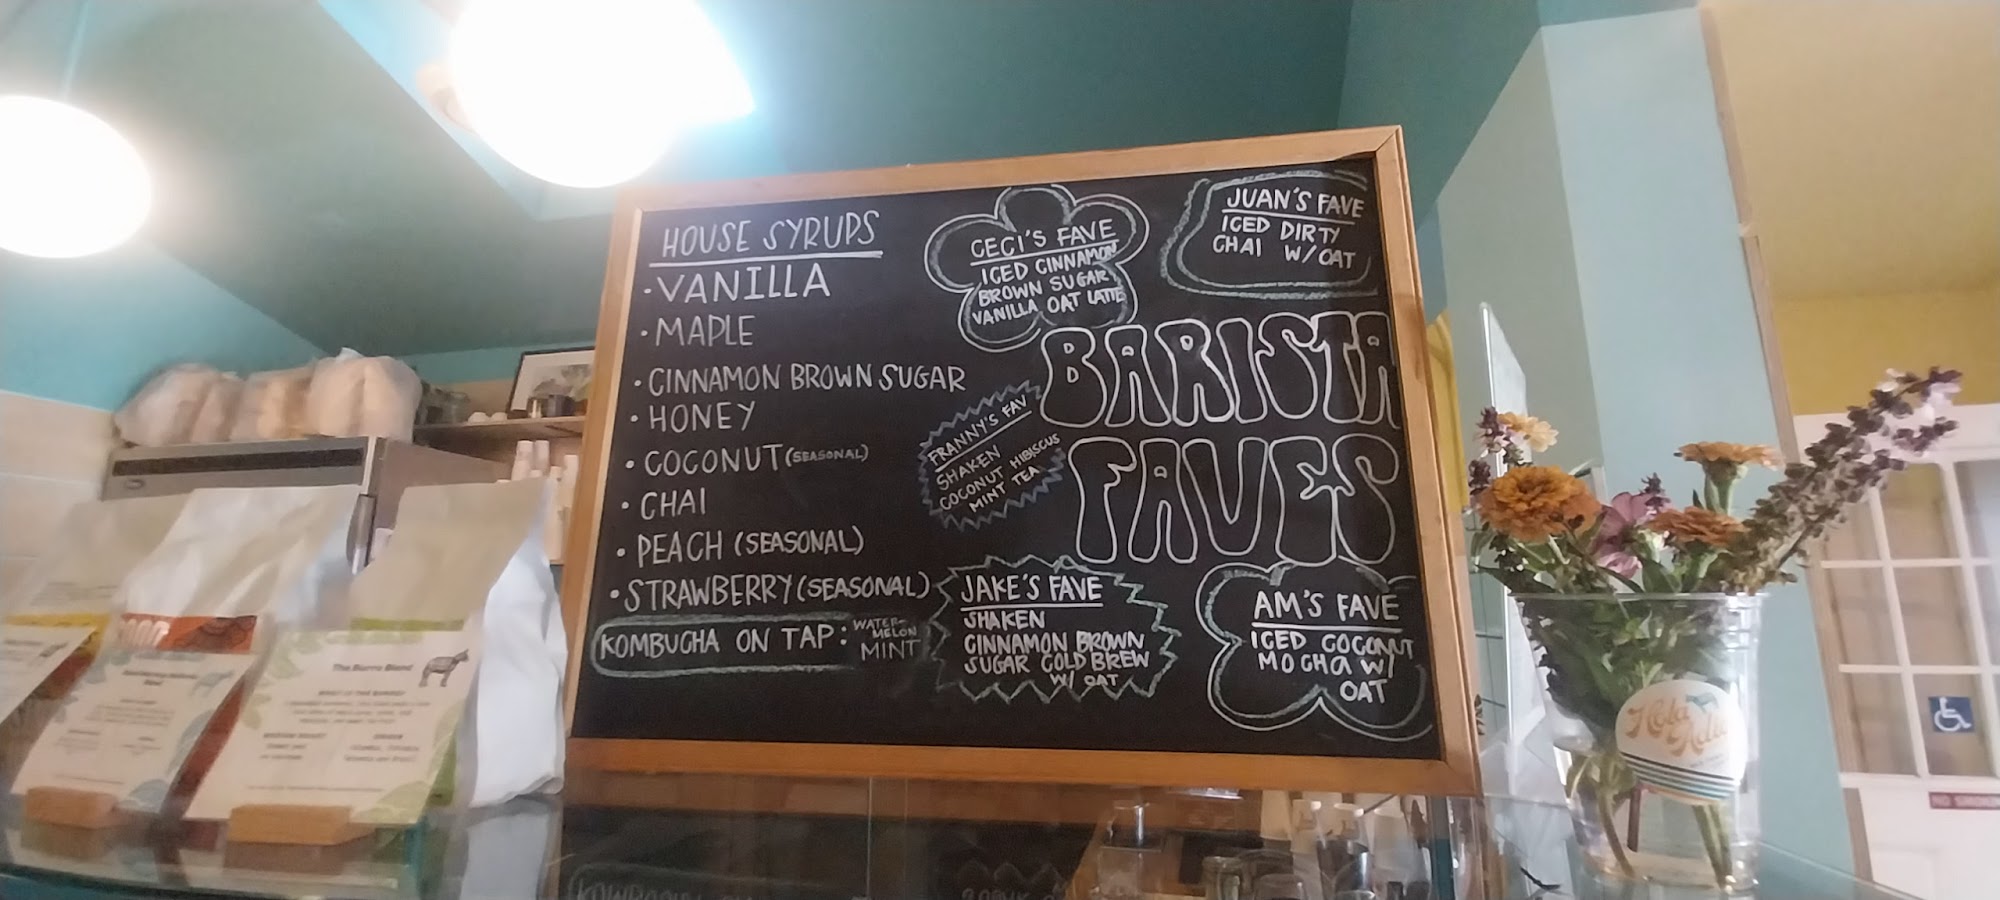 HOUSE SYRUPS
• VANILLA
• MAPLE
• CINNAMON BROWN SUGAR
• HONEY
• COCONUT (SEASONAL)
• CHAI
• PEACH (SEASONAL)
• STRAWBERRY (SEASONAL)
KOMBUCHA ON TAP: WATER-
MELON
MINT
CECI'S FAVE
ICED CINNAMON
BROWN SUGAR
VANILLA OAT LATTE
JUAN'S FAVE
ICED DIRTY
CHAI W/ OAT
BARISTA
FAVES
FRANNY'S FAV
SHAKEN
COCONUT HIBISCUS
MINT TEA
JAKE'S FAVE
SHAKEN
CINNAMON BROWN
SUGAR COLD BREW
W/ OAT
AM'S FAVE
ICED COCONUT
MOCHA W/
OAT
The Burro Blend
Hola